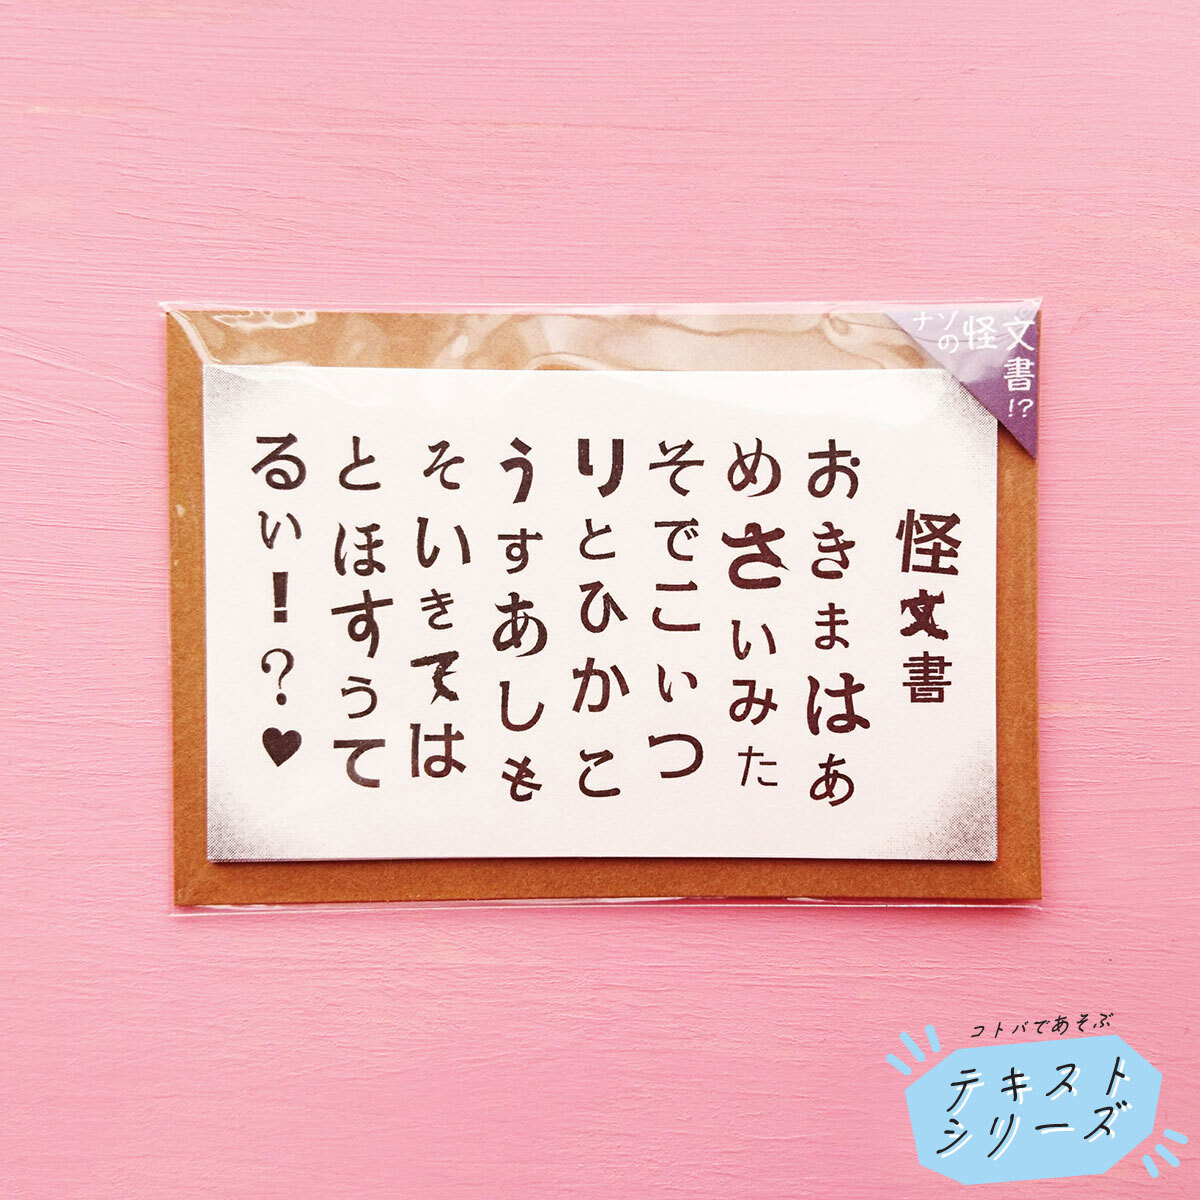 ナゾの怪文書!?
怪文書
おきまはぁ
めさいみた
そでこぃつ
りとひかこ
うすあしも
そいきては
とほすぅて
るい!?♥
コトバであそぶ
テキスト
シリーズ